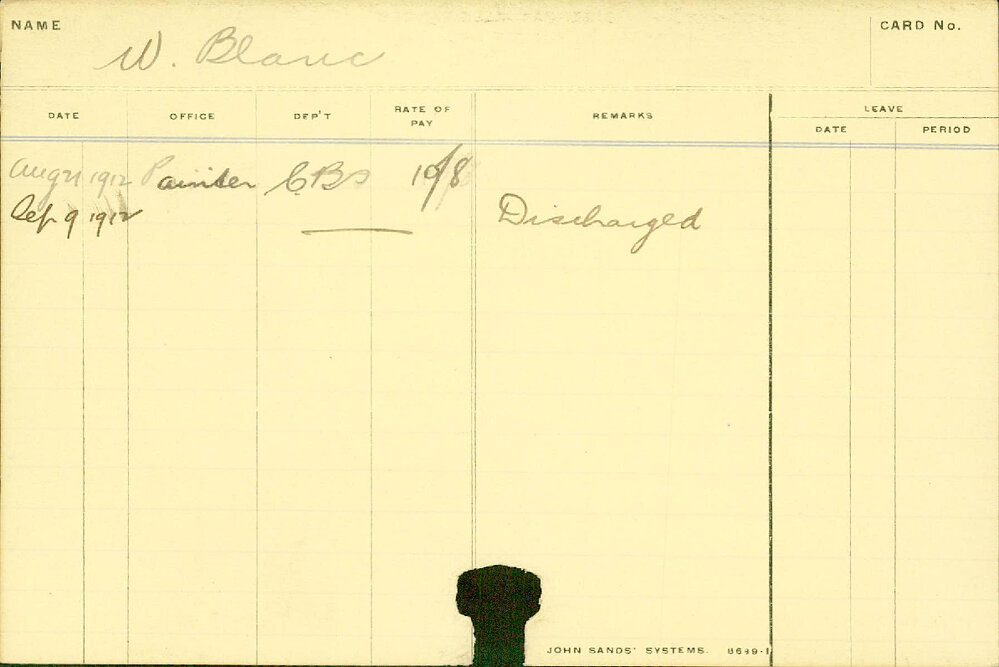 NAME
CARD No.
W. Blanc
DATE OFFICE DEP'T RATE OF PAY REMARKS LEAVE
DATE PERIOD
Aug 21 1912 Painter CBS 10/8
Sep 9 1912 Discharged
JOHN SANDS' SYSTEMS.